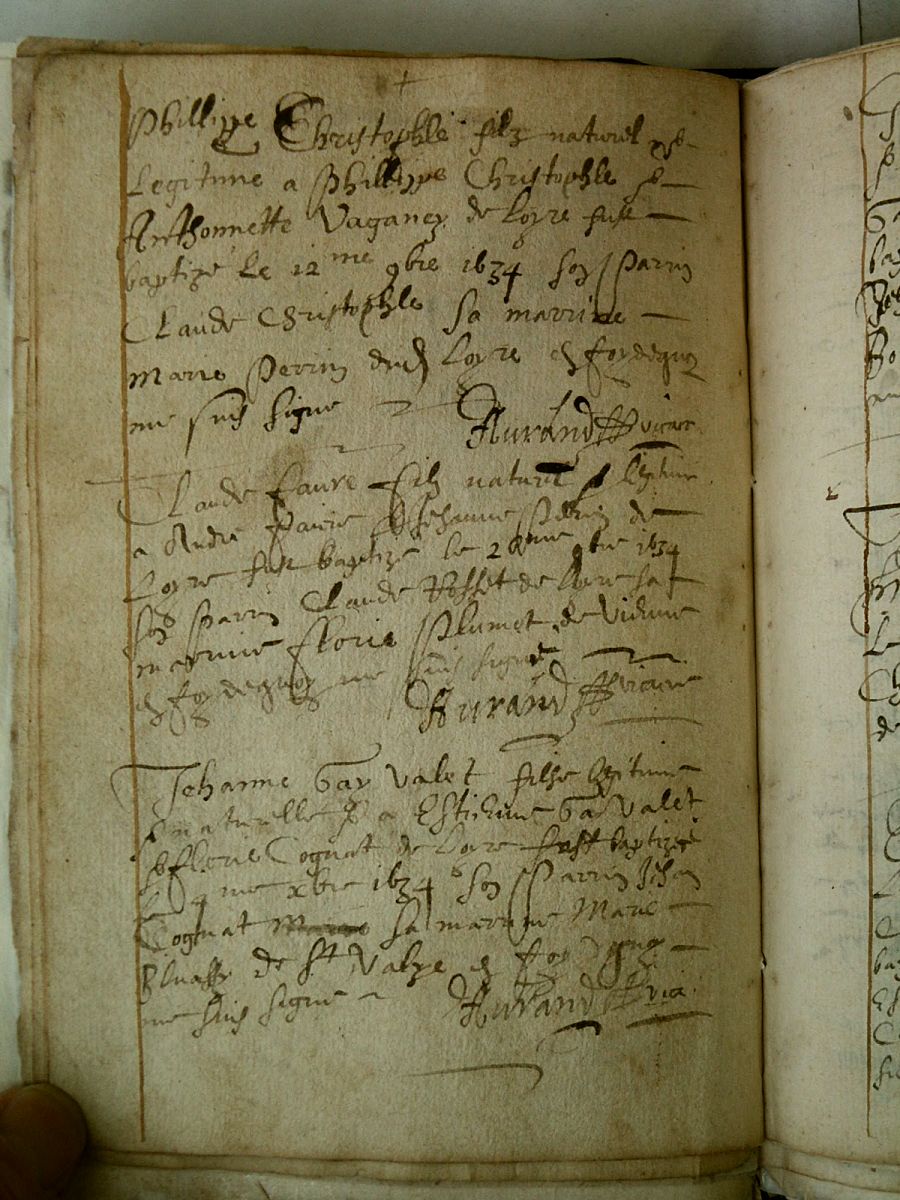 Phillippe Christophle filz naturel et
Legitime a Phillippe Christophle et
Anthonnette Vaganey de Loyre fust
baptizé Le 12me 9bre 1634 son Parrin
Claude Christophle sa marrine
Marie Perrin dud Loyre en foy de quoy
me suis signé Aurand vicaire
Claude faure filz naturel et legitime
a André faure et Jehanne Perrin de
Loyre fust baptizé le 28me 9bre 1634
son parrin Claude Rosset de Loyre sa
marrine florie Plumet de Vienne
en foy de quoy me suis signé
Aurand vicaire
Jehanne Gay Valet fillie legitime
et naturelle a Estienne Gay Valet
et florie Cognat de Loyre fust baptizée
le 4me xbre 1634 son Parrin Jehan
Cognat sa marrine Marie
de St Valye en foy de quoy
me suis signé Aurand vic.